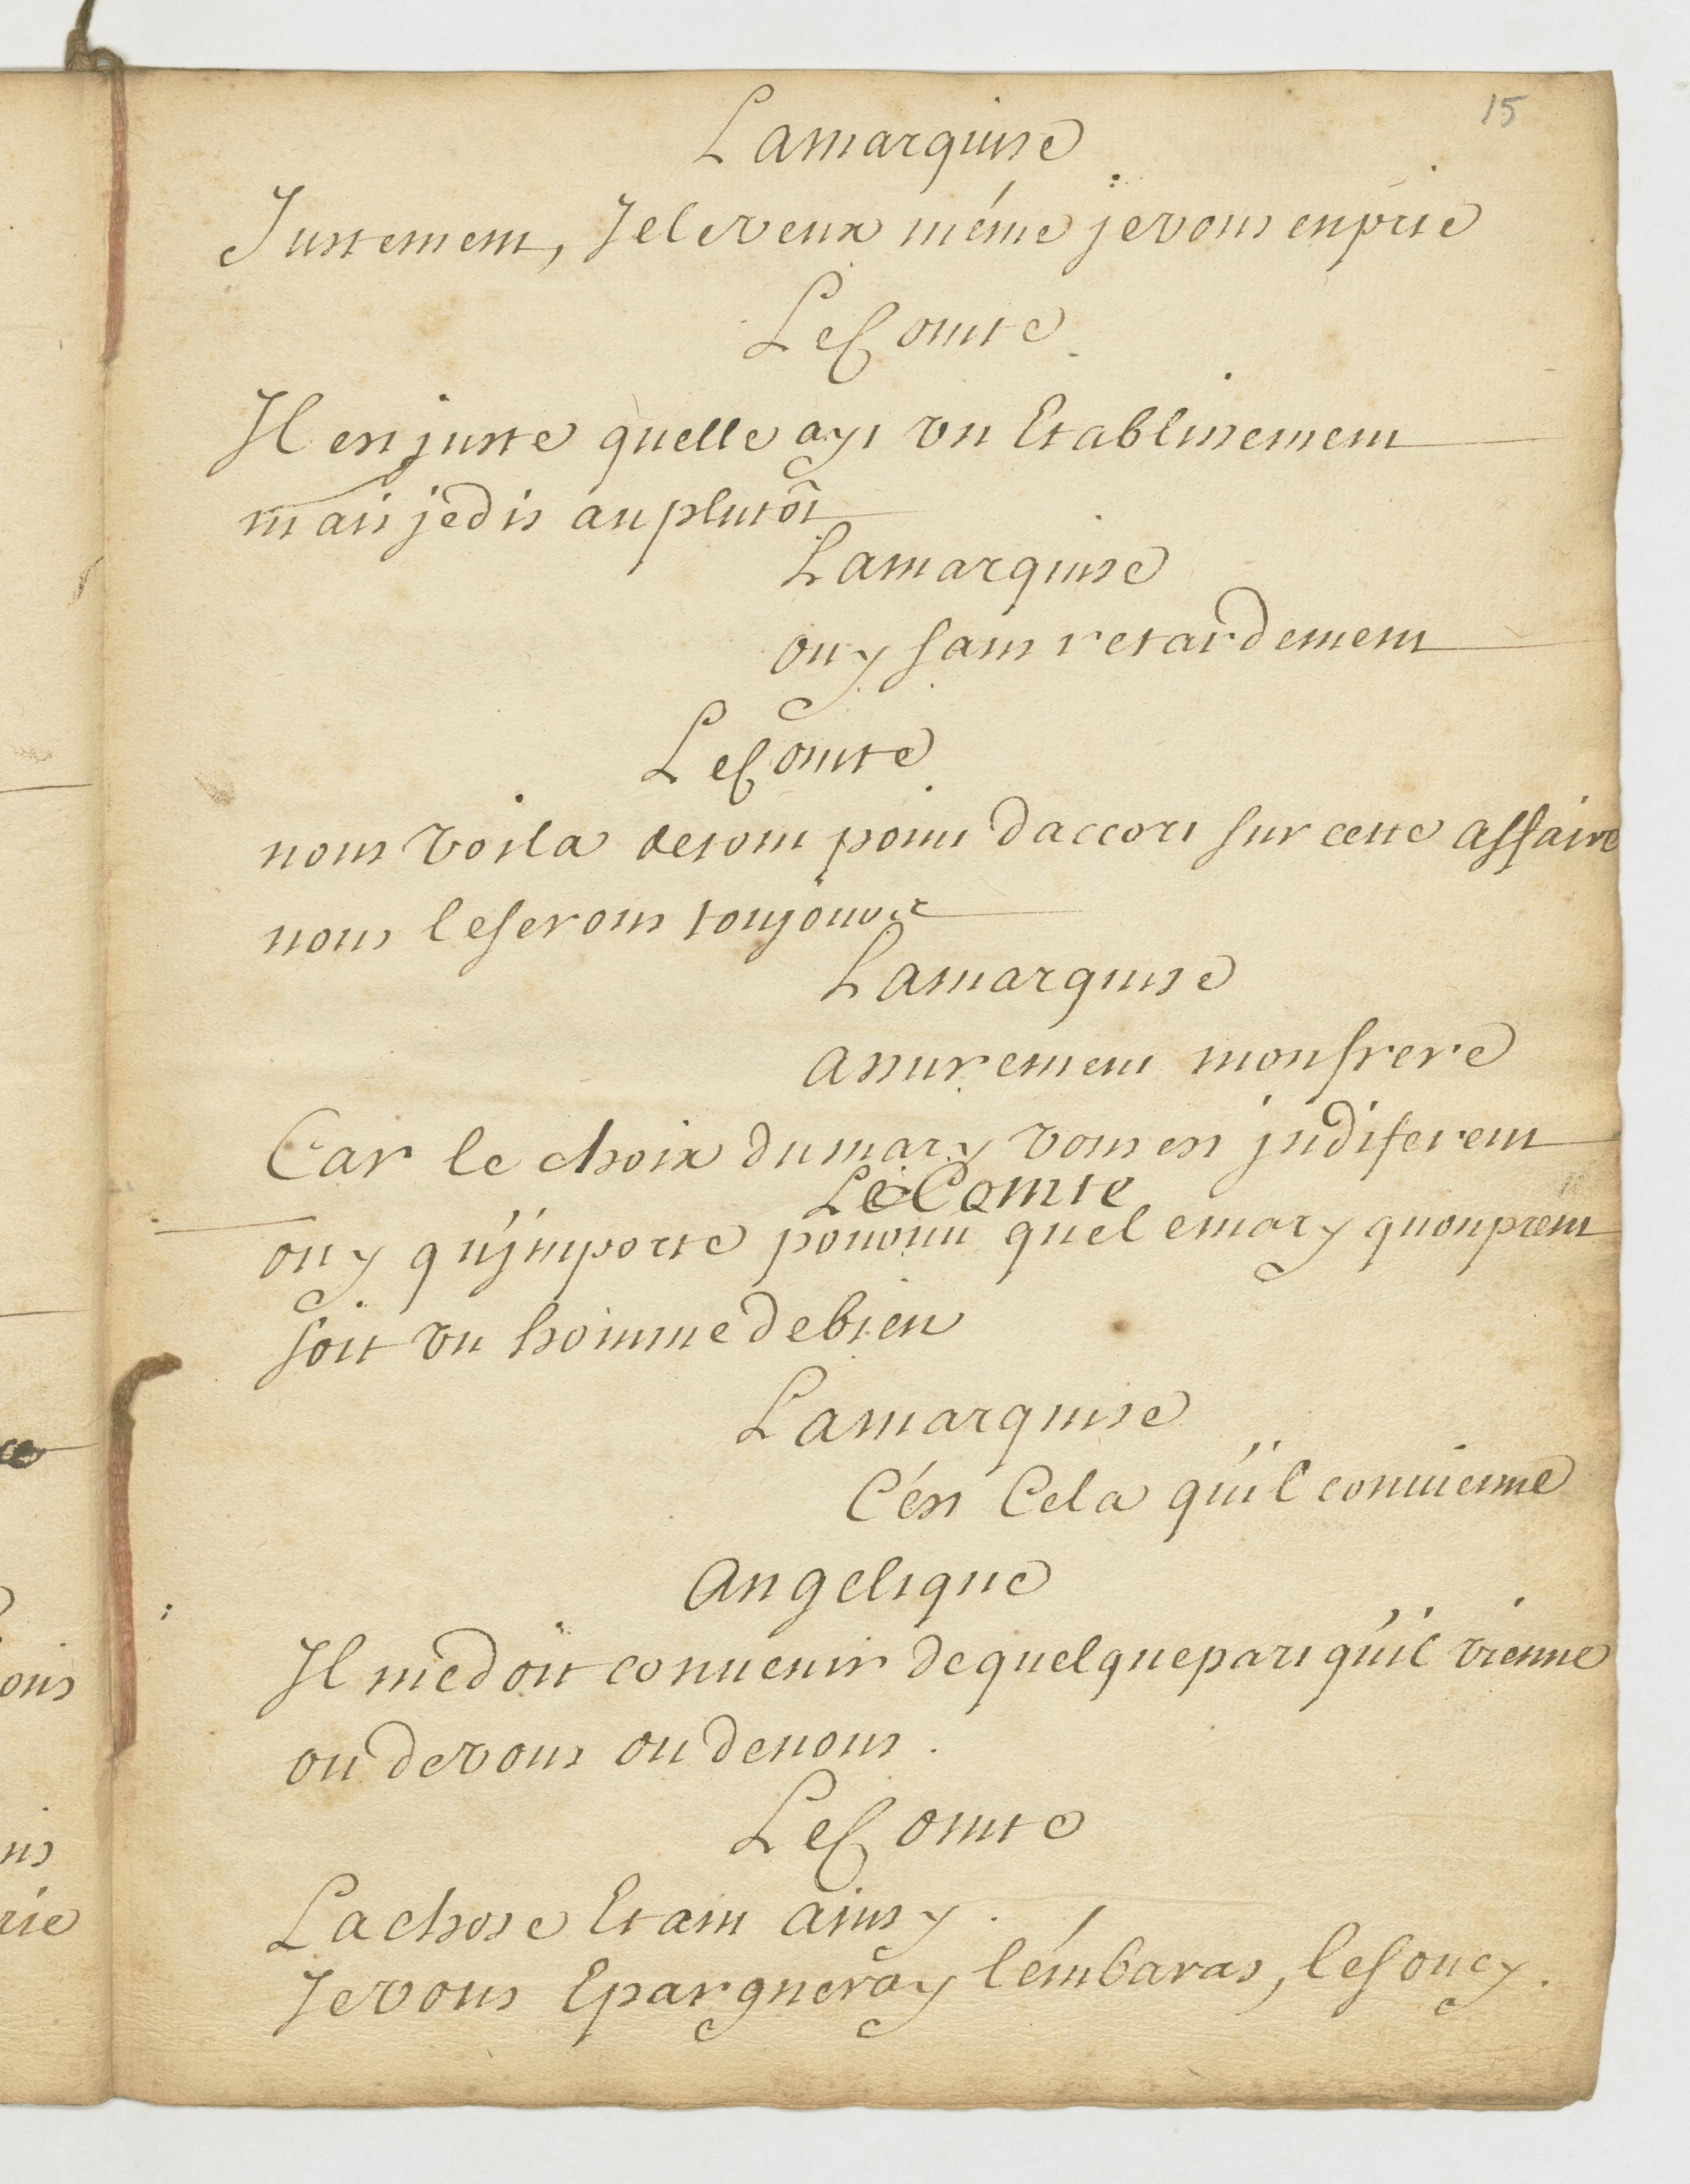 15
Lamarquise
Justement, Jeleveux méme jevous enprie
LeComte
Il est juste quelle ayt vn Etablissement
mais jedis auplutôt
Lamarquise
ouy sans retardement
LeComte
nous voila detout point daccort sur cette affaire
nous leserons toujours
Lamarquise
assurement monfrere
Car le choix dumary vous est jndiferent
LeComte
ouy qu'jmporte pouruu quel emary quonprent
soit vn homme debien
Lamarquise
C'ést Cela qu'il conuienne
Angelique
Il medoit conuenir dequelquepart qu'il vienne
ou devous ou denous.
LeComte
Lachose Etant ainsy.
Jevous Epargneray l'émbaras, lesoucy.